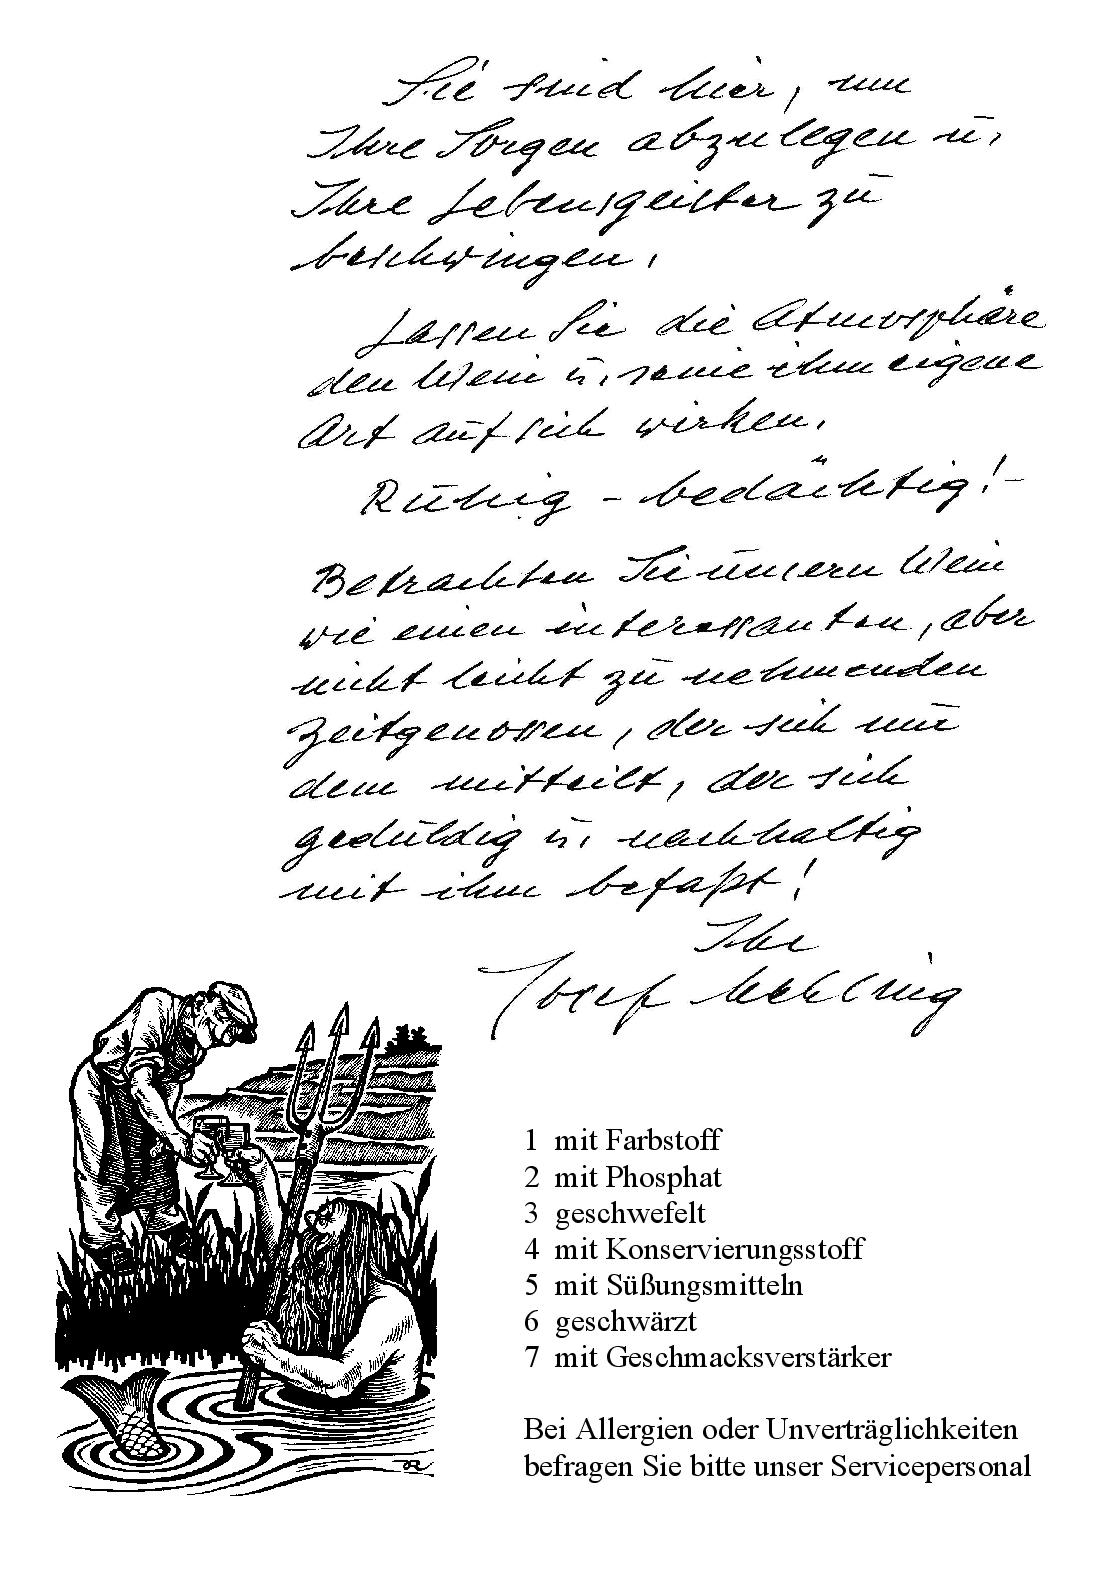 Sie sind hier, um
Ihre Sorgen abzulegen u.
Ihre Lebensgeister zu
beschwingen.
Lassen Sie die Atmosphäre
den Wein u. seine ihm eigene
Art auf sich wirken.
Ruhig – bedächtig! –
Betrachten Sie unsern Wein
wie einen interessanten, aber
nicht leicht zu nehmenden
Zeitgenossen, der sich nur
dem mitteilt, der sich
geduldig u. nachhaltig
mit ihm befaßt!
Ihr
Josef Mehling
1 mit Farbstoff
2 mit Phosphat
3 geschwefelt
4 mit Konservierungsstoff
5 mit Süßungsmitteln
6 geschwärzt
7 mit Geschmacksverstärker
Bei Allergien oder Unverträglichkeiten
befragen Sie bitte unser Servicepersonal